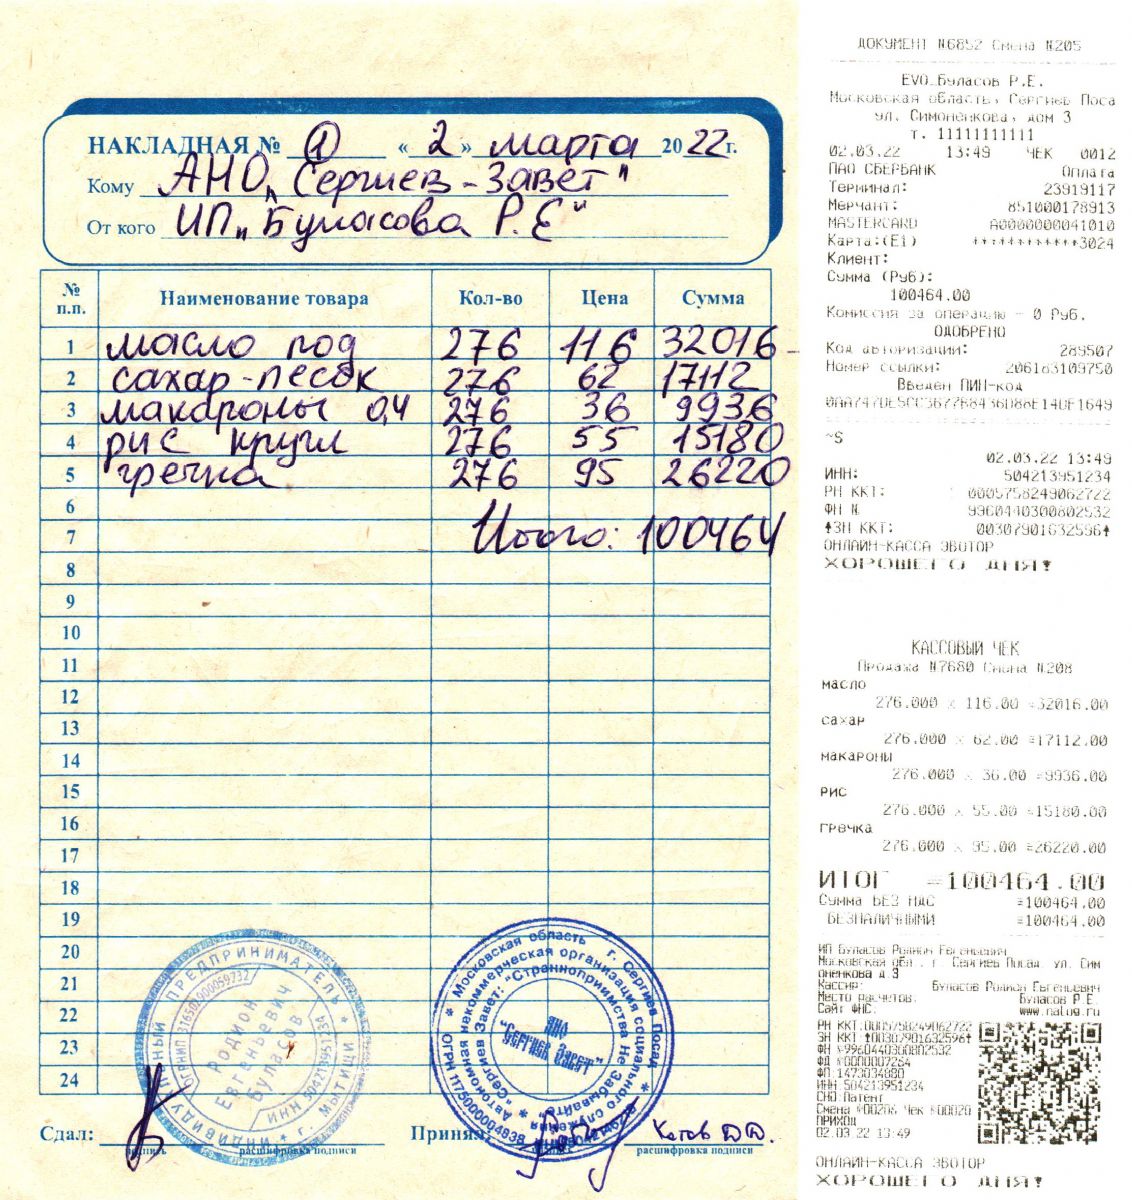 НАКЛАДНАЯ № 1 «2» марта 2022 г.
Кому АНО „Сергиев-Завет"
От кого ИП „Буласова Р.Е"
№ п.п. Наименование товара Кол-во Цена Сумма
1 масло под 276 116 32016
2 сахар-песок 276 62 17112
3 макароны 0,4 276 36 9936
4 рис кругл 276 55 15180
5 гречка 276 95 26220
6
7 Итого: 100464
8
9
10
11
12
13
14
15
16
17
18
19
20
21
22
23
24
Сдал: Принял: Котов Д.Д.
подпись расшифровка подписи расшифровка подписи
ИНДИВИДУАЛЬНЫЙ ПРЕДПРИНИМАТЕЛЬ * г. МЫТИЩИ *
Родион
Евгеньевич
Буласов
ИНН 504213951234
Московская область г. Сергиев Посад
Автономная некоммерческая организация социального служения
"Сергиев Завет: "Странноприимства Не Забывайте"
ОГРН 1175000004838
АНО
"Сергиев Завет"
ДОКУМЕНТ №6852 Смена №205
EVO_Буласов Р.Е.
Московская область, Сергиев Поса
ул. Симоненкова, дом 3
т. 11111111111
02.03.22 13:49 ЧЕК 0012
ПАО СБЕРБАНК Оплата
Терминал: 23919117
Мерчант: 851000178913
MASTERCARD A0000000041010
Карта:(E1) ************3024
Клиент:
Сумма (Руб):
100464.00
Комиссия за операцию - 0 Руб.
ОДОБРЕНО
Код авторизации: 289507
Номер ссылки: 206163109750
Введен ПИН-код
~S
02.03.22 13:49
ИНН: 504213951234
РН ККТ: 0005758249062722
ФН № 9960440300802532
ЗН ККТ: 00307901632596
ОНЛАЙН-КАССА ЭВОТОР
ХОРОШЕГО ДНЯ!
КАССОВЫЙ ЧЕК
Продажа №7680 Смена №208
масло
276.000 x 116.00 =32016.00
сахар
276.000 x 62.00 =17112.00
макароны
276.000 x 36.00 =9936.00
рис
276.000 x 55.00 =15180.00
гречка
276.000 x 95.00 =26220.00
ИТОГ =100464.00
Сумма БЕЗ НДС =100464.00
БЕЗНАЛИЧНЫМИ =100464.00
ИП Буласов Родион Евгеньевич
Московская обл., г. Сергиев Посад, ул. Сим
оненкова д.3
Кассир: Буласов Родион Евгеньевич
Место расчетов: Буласов Р.Е.
Сайт ФНС: www.nalog.ru
РН ККТ:0005758249062722
ЗН ККТ:00307901632596
ФН №9960440300802532
ФД №0000007264
ФП:1473034880
ИНН:504213951234
СНО:Патент
Смена №00206 Чек №00020
ПРИХОД
02.03.22 13:49
ОНЛАЙН-КАССА ЭВОТОР
ХОРОШЕГО ДНЯ!